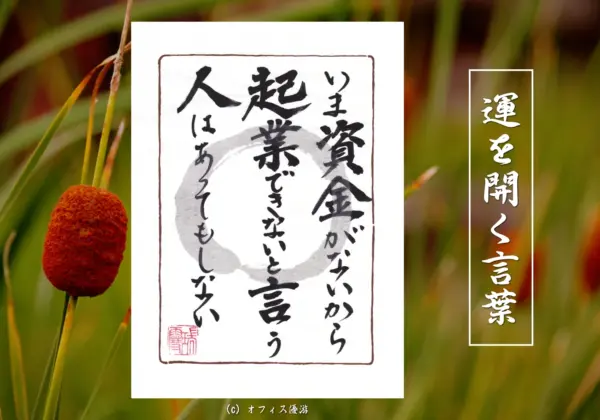 運を開く言葉
いま資金がないから
起業できないと言う
人はあってもしない
(C) オフィス優游